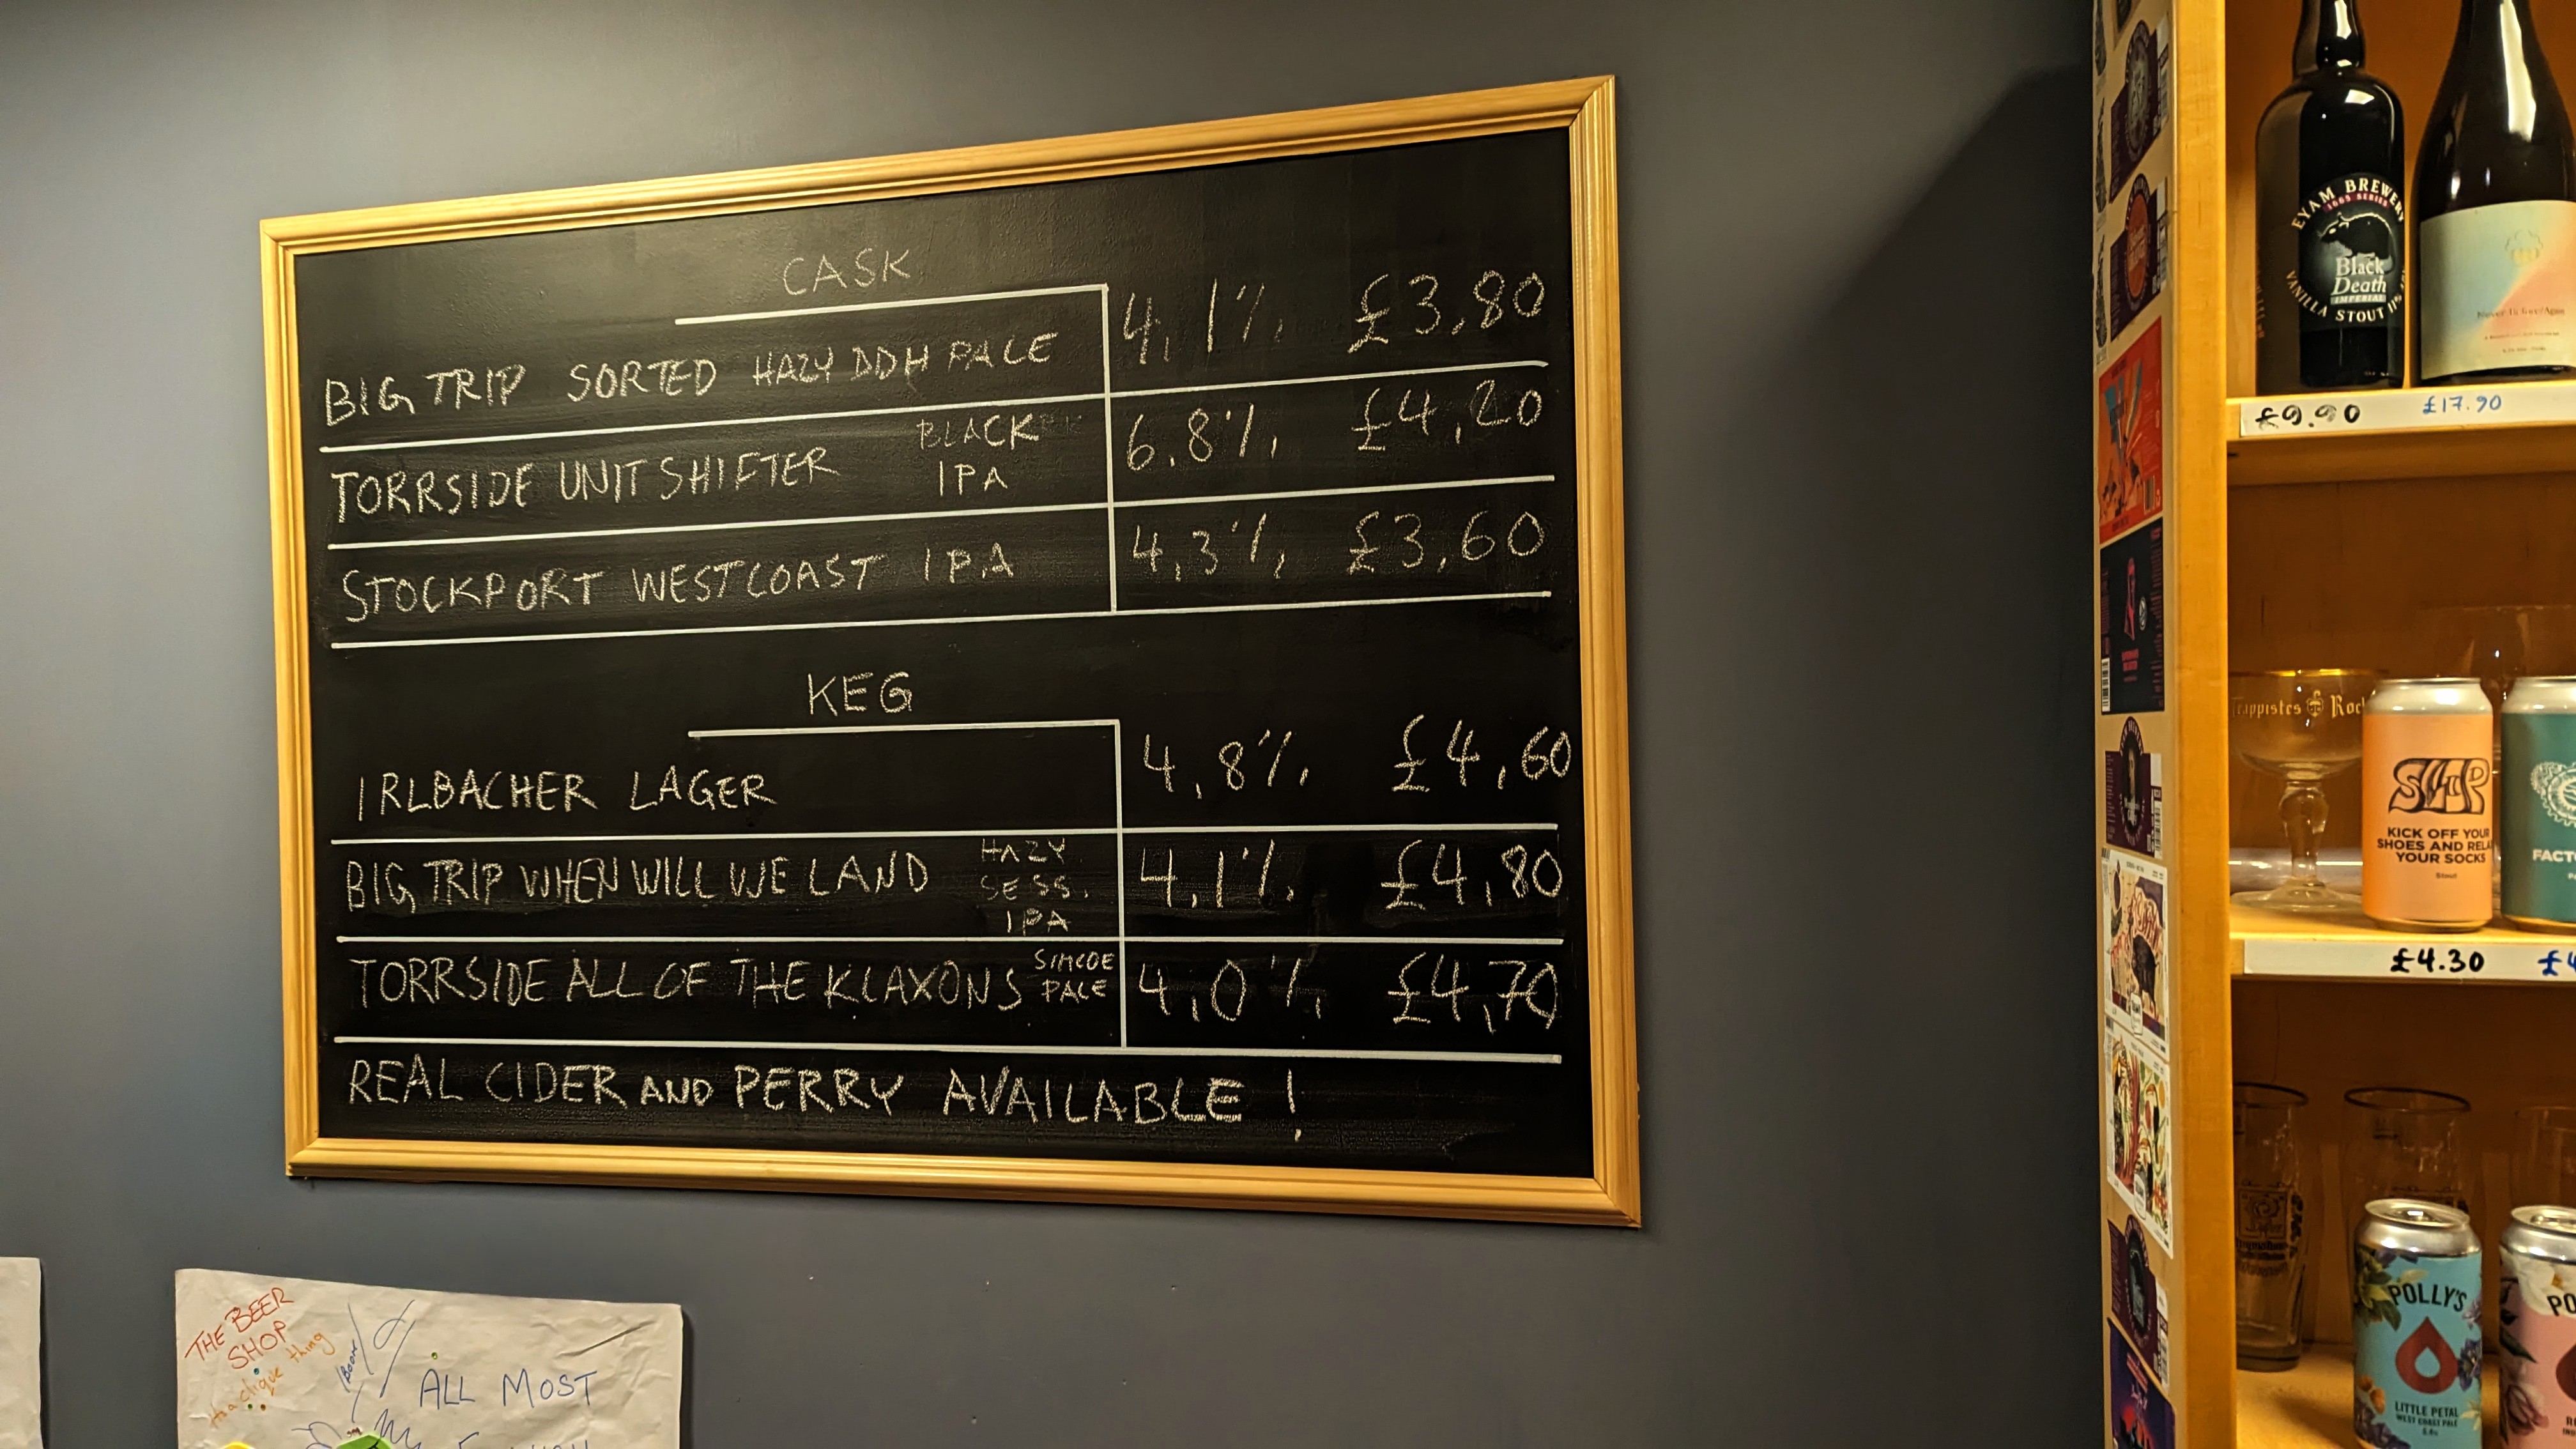 CASK
BIG TRIP SORTED HAZY DDH PALE 4.1% £3.80
TORRSIDE UNIT SHIFTER BLACK IPA 6.8% £4.20
STOCKPORT WEST COAST IPA 4.3% £3.60
KEG
IRLBACHER LAGER 4.8% £4.60
BIG TRIP WHEN WILL WE LAND HAZY SESS. IPA 4.1% £4.80
TORRSIDE ALL OF THE KLAXONS SIMCOE PALE 4.0% £4.70
REAL CIDER AND PERRY AVAILABLE!
THE BEER
SHOP
thing
ALL MOST
EYAM BREWERY
1665 SERIES
Black
Death
IMPERIAL
VANILLA STOUT
£9.90 £17.90
KICK OFF YOUR
SHOES AND RELA
YOUR SOCKS
Stout
FACT
£4.30 £4
POLLY'S
LITTLE PETAL
WEST COAST PALE
PO